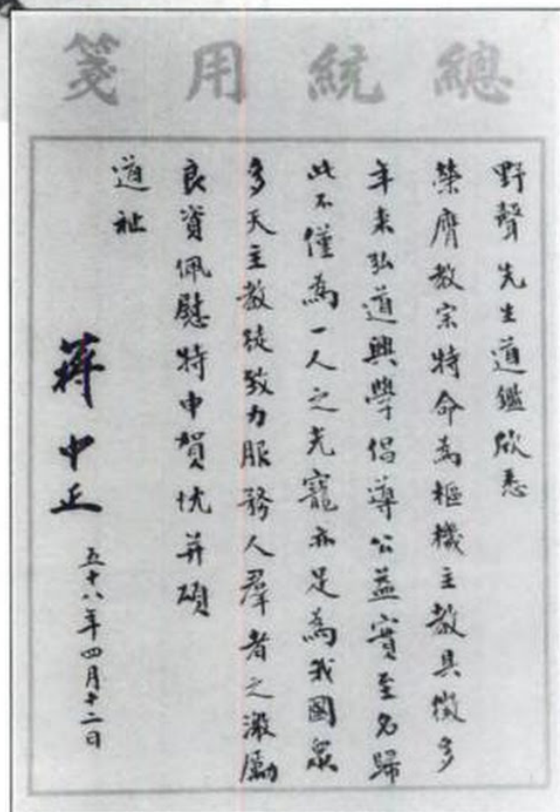 總統用箋
野聲先生道鑑欣悉
榮膺教宗特命為樞機主教具徵多
年來弘道興學倡導公益實至名歸
此不僅為一人之光寵亦足為我國眾
多天主教徒致力服務人羣者之激勵
良資佩慰特申賀忱并頌
道祉
蔣中正
五十八年四月十二日